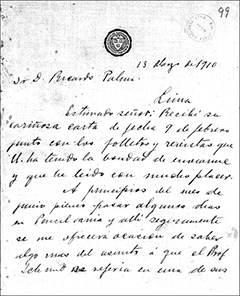 99
13 Mayo de 1910.
Sr D. Ricardo Palma.
Lima
Estimado señor: Recibí su
cariñosa carta de fecha 9 de febrero
junto con los folletos y revistas que
U. ha tenido la bondad de enviarme
y que he leido con mucho placer.
A principios del mes de
junio pienso pasar algunos dias
en Pensilvania y allí seguramente
se me ofrecerá ocasion de saber
algo mas del asunto á que el Prof.
se referia en una de sus